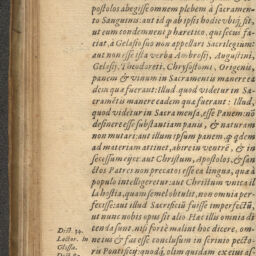 postolos abegisse omnem plebem à sacramen-
to Sanguinis: aut id quod ipsi hodie vbiq́; fit,
ut eum condemnent pro hæretico, qui secus fa-
ciat, à Gelasio suo non appellari Sacrilegium:
aut non esse ista verba Ambrosij, Augustini,
Gelasij, Theodoreti, Chrysostomi, Origenis,
panem & vinum in Sacramentis manere ea-
dem quæ fuerant: Illud quod videtur in Sa-
cramētis manere eadem quæ fuerant: Illud,
quod videtur in Sacra mensa, esse Panem: nō
desinere esse substantiam panis, & naturam
non mutari: aut illum ipsum panem, quoad
ad materiam attinet, abire in ventrē, & in
secessum ejici: aut Christum, Apostolos, & san-
ctos Patres non precatos esse ea lingua, quæ à
populo intelligeretur: aut Christum unica il-
la hostia, quam semel obtulit, non omnia per-
fecisse: aut illud Sacrificiū fuisse imperfectū,
ut nunc nobis opus sit alio. Hæc illis omnia di-
cenda sunt, nisi fortè malint hoc dicere, om-
ne ius & fas esse conclusum in scrinio pecto-
ris Pontificij: quodq́, olim quidam ex eius as-
Dist. 34.
Lector. In
Glosa.